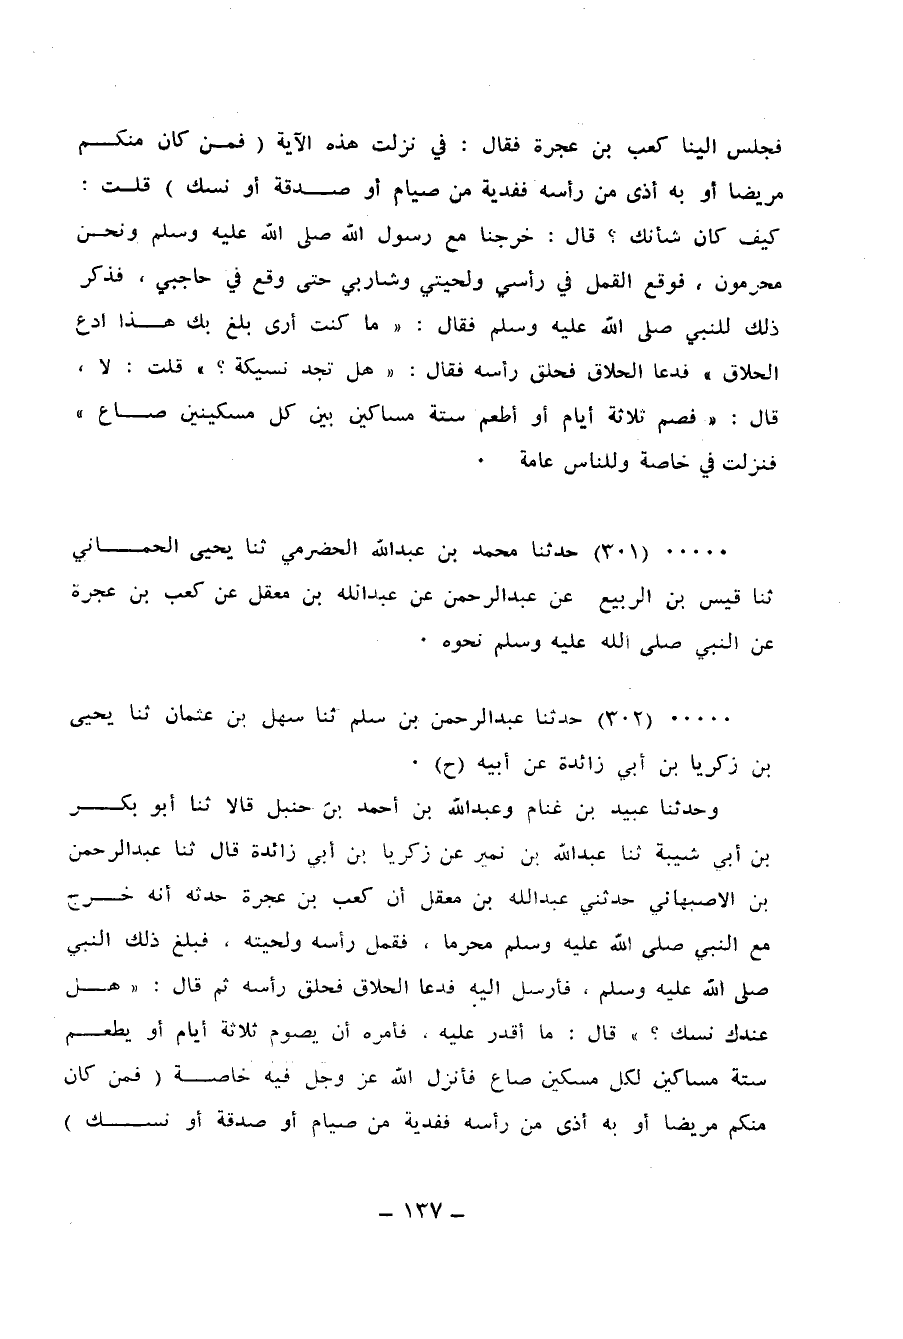 فجلس الينا كعب بن عجرة فقال : في نزلت هذه الآية ( فمن كان منكم
مريضا أو به أذى من رأسه ففدية من صيام أو صدقة أو نسك ) قلت :
كيف كان شأنك ؟ قال : خرجنا مع رسول الله صلى الله عليه وسلم ونحن
محرمون ، فوقع القمل في رأسي ولحيتي وشاربي حتى وقع في حاجبي ، فذكر
ذلك للنبي صلى الله عليه وسلم فقال : « ما كنت أرى بلغ بك هذا ادع
الحلاق » فدعا الحلاق فحلق رأسه فقال : « هل تجد نسيكة ؟ » قلت : لا ،
قال : « فصم ثلاثة أيام أو أطعم ستة مساكين بين كل مسكينين صاع »
فنزلت في خاصة وللناس عامة ٠
٠٠٠٠٠ (٣٠١) حدثنا محمد بن عبدالله الحضرمي ثنا يحيى الحماني
ثنا قيس بن الربيع عن عبدالرحمن عن عبدالله بن معقل عن كعب بن عجرة
عن النبي صلى الله عليه وسلم نحوه ٠
٠٠٠٠٠ (٣٠٢) حدثنا عبدالرحمن بن سلم ثنا سهل بن عثمان ثنا يحيى
بن زكريا بن أبي زائدة عن أبيه (ح) ٠
وحدثنا عبيد بن غنام وعبدالله بن أحمد بن حنبل قالا ثنا أبو بكر
بن أبي شيبة ثنا عبدالله بن نمير عن زكريا بن أبي زائدة قال ثنا عبدالرحمن
بن الاصبهاني حدثني عبدالله بن معقل أن كعب بن عجرة حدثه أنه خرج
مع النبي صلى الله عليه وسلم محرما ، فقمل رأسه ولحيته ، فبلغ ذلك النبي
صلى الله عليه وسلم ، فأرسل اليه فدعا الحلاق فحلق رأسه ثم قال : « هل
عندك نسك ؟ » قال : ما أقدر عليه ، فأمره أن يصوم ثلاثة أيام أو يطعم
ستة مساكين لكل مسكين صاع فأنزل الله عز وجل فيه خاصة ( فمن كان
منكم مريضا أو به أذى من رأسه ففدية من صيام أو صدقة أو نسك )
– ١٣٧ –